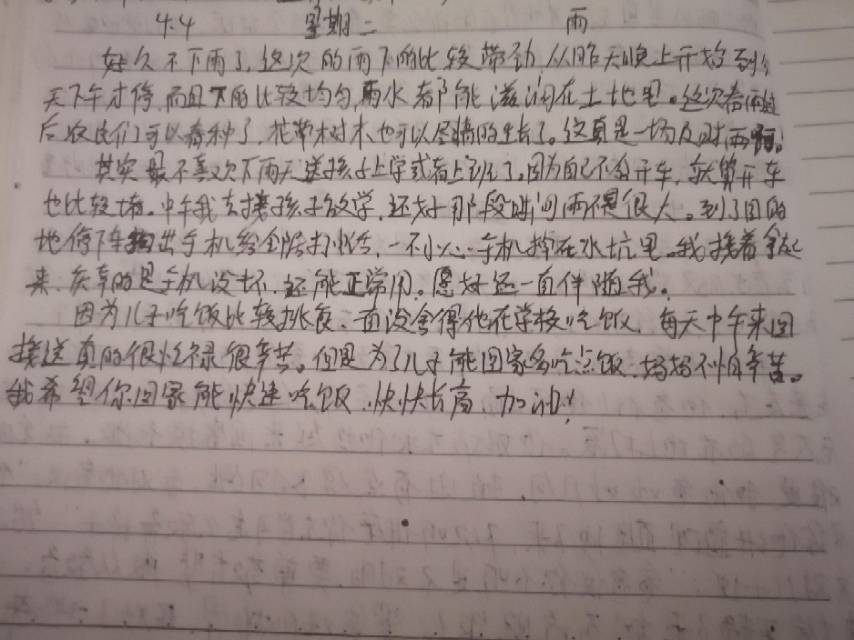 4.4 星期二 雨
好久不下雨了,这次的雨下的比较带劲从昨天晚上开始到今
天下午才停,而且下的比较均匀,雨水都能滋润在土地里。这次春雨过
后农民们可以春种了,花草树木也可以尽情的生长了。这真是一场及时雨啊!
其实最不喜欢下雨天送孩子上学或者上班了。因为自己不会开车,就算开车
也比较堵。中午我去接孩子放学,还好那段时间雨不是很大。到了目的
地停下车掏出手机给全 打状态,一不小心手机摔在水坑里。我接着拿起
来,庆幸的是手机没坏,还能正常用。愿好运一直伴随我。
因为儿子吃饭比较挑食,而没舍得他在学校吃饭,每天中午来回
接送真的很忙碌很辛苦。但是为了儿子能回家多吃点饭,妈妈不怕辛苦。
我希望你回家能快速吃饭,快快长高,加油!